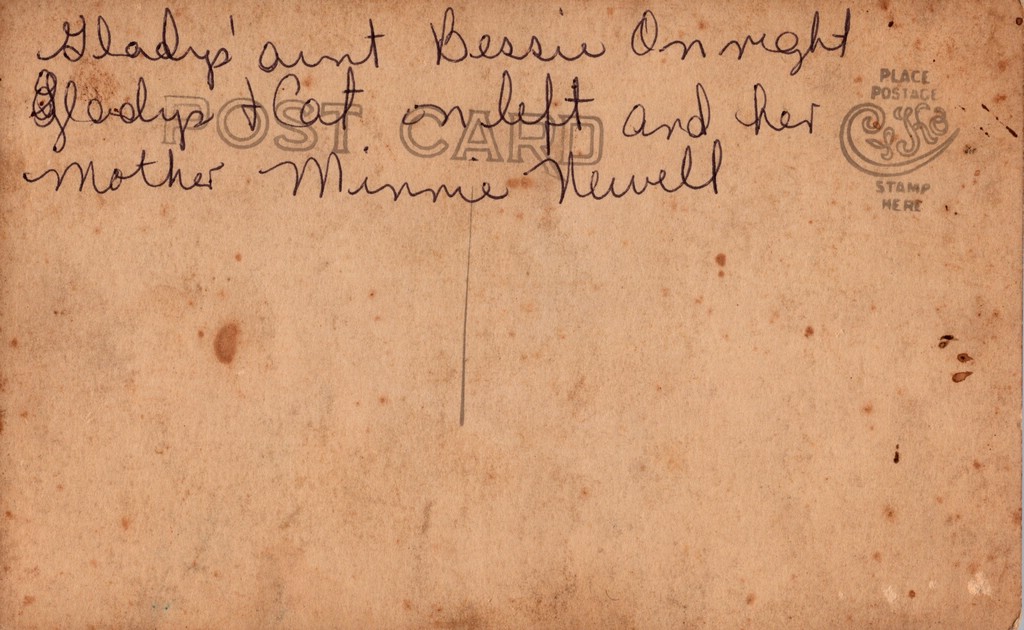 Gladys' aunt Bessie On right
Gladys & Cat on left and her
mother Minnie Newell
POST CARD
PLACE
POSTAGE
CYKO
STAMP
HERE